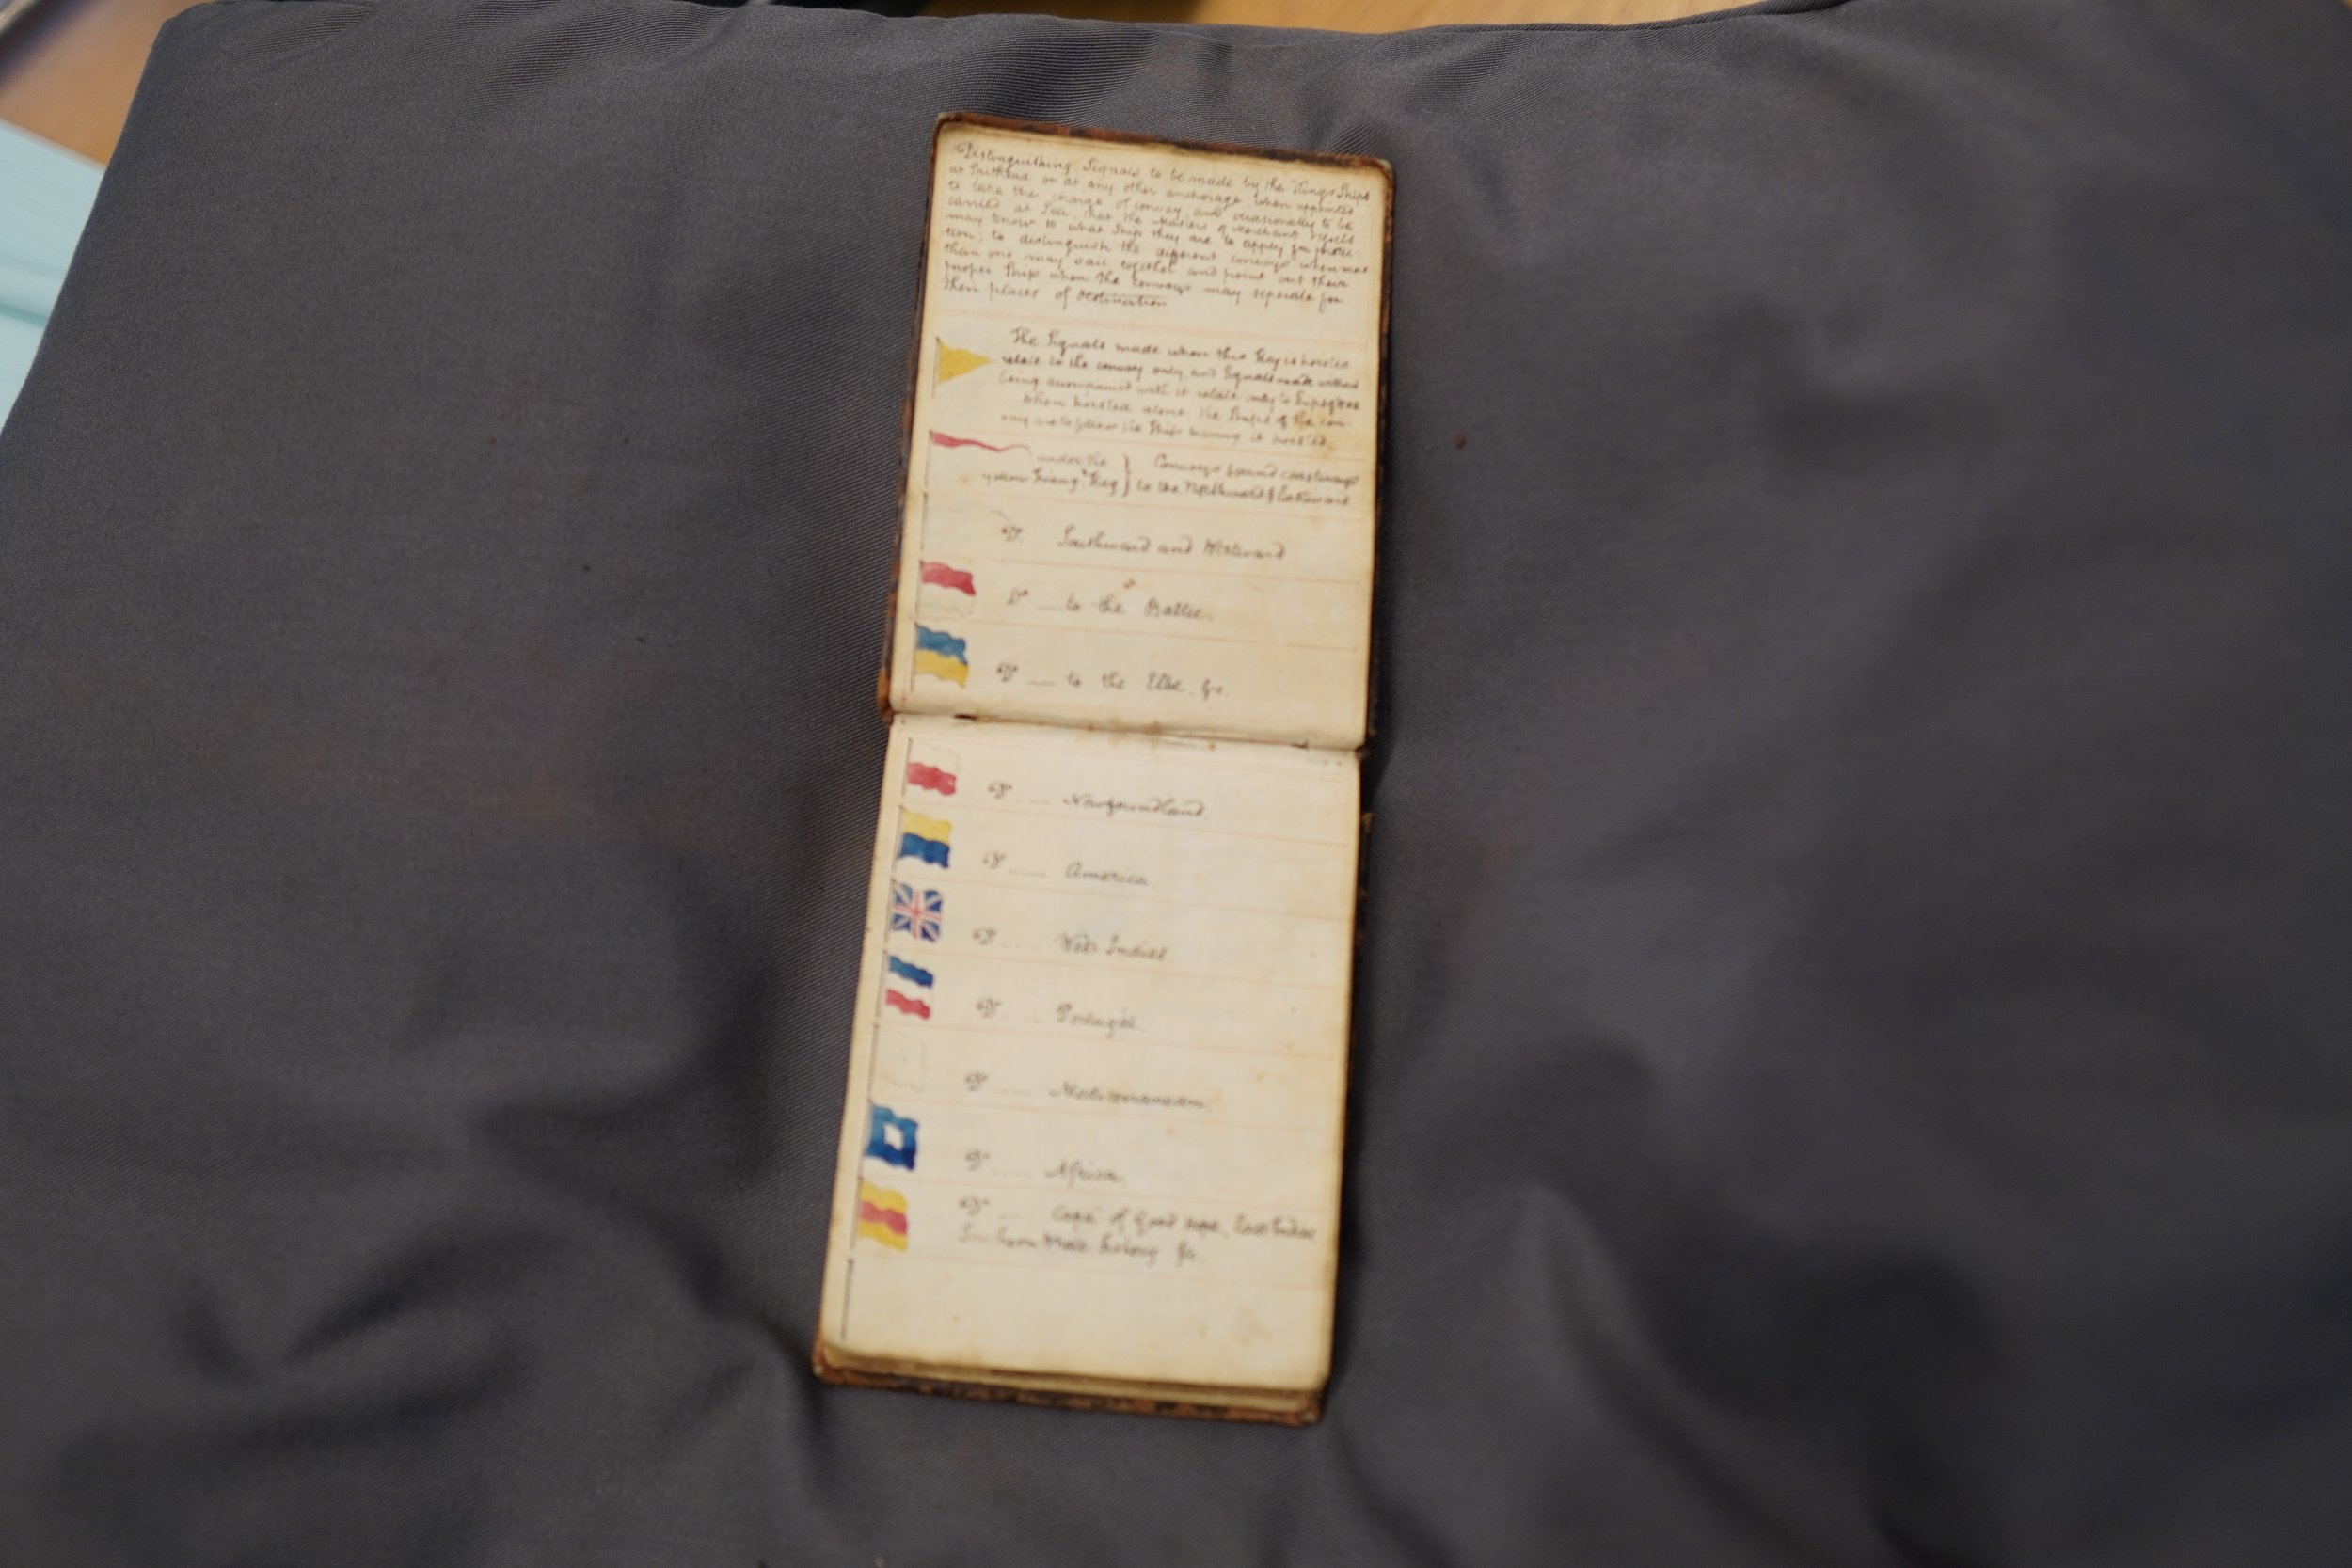 Distinguishing Signals to be made by the Kings Ships
at Spithead or at any other anchorage when appointed
to take the charge of convoy, and occasionally to be
carried at Sea, that the Masters of Merchant Vessels
may know to what Ship they are to apply for protec:
tion; to distinguish the different convoys when more
than one may sail together and point out their
proper Ship when the Convoys may seperate for
their places of destination
The Signals made when this Flag is hoisted
relate to the convoy only, and Signals made without
being accompanied with it relate only to Ships
When hoisted alone the Ships of the con-
voy are to follow the Ship having it hoisted.
under the } Convoys bound coastways
Triang. Flag } to the Northward & Eastward
Do. Southward and Westward
Do to the Baltic.
Do to the Elbe &c.
Do Newfoundland
Do America
Do West Indies
Do Portugal
Do Mediterranean
Do Africa
Do Cape of Good Hope, East Indies
Southern Whale fishery &c.